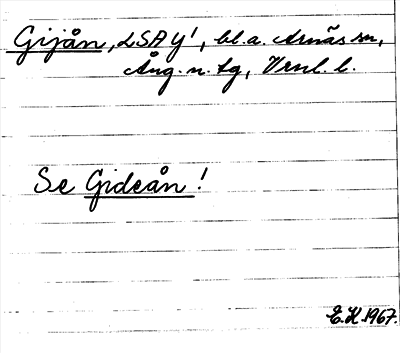 Gijån, LSAY', bl.a. Arnäs sn,
Ång. n. tg, Vrnl. l.
Se Gideån!
E.K 1967.